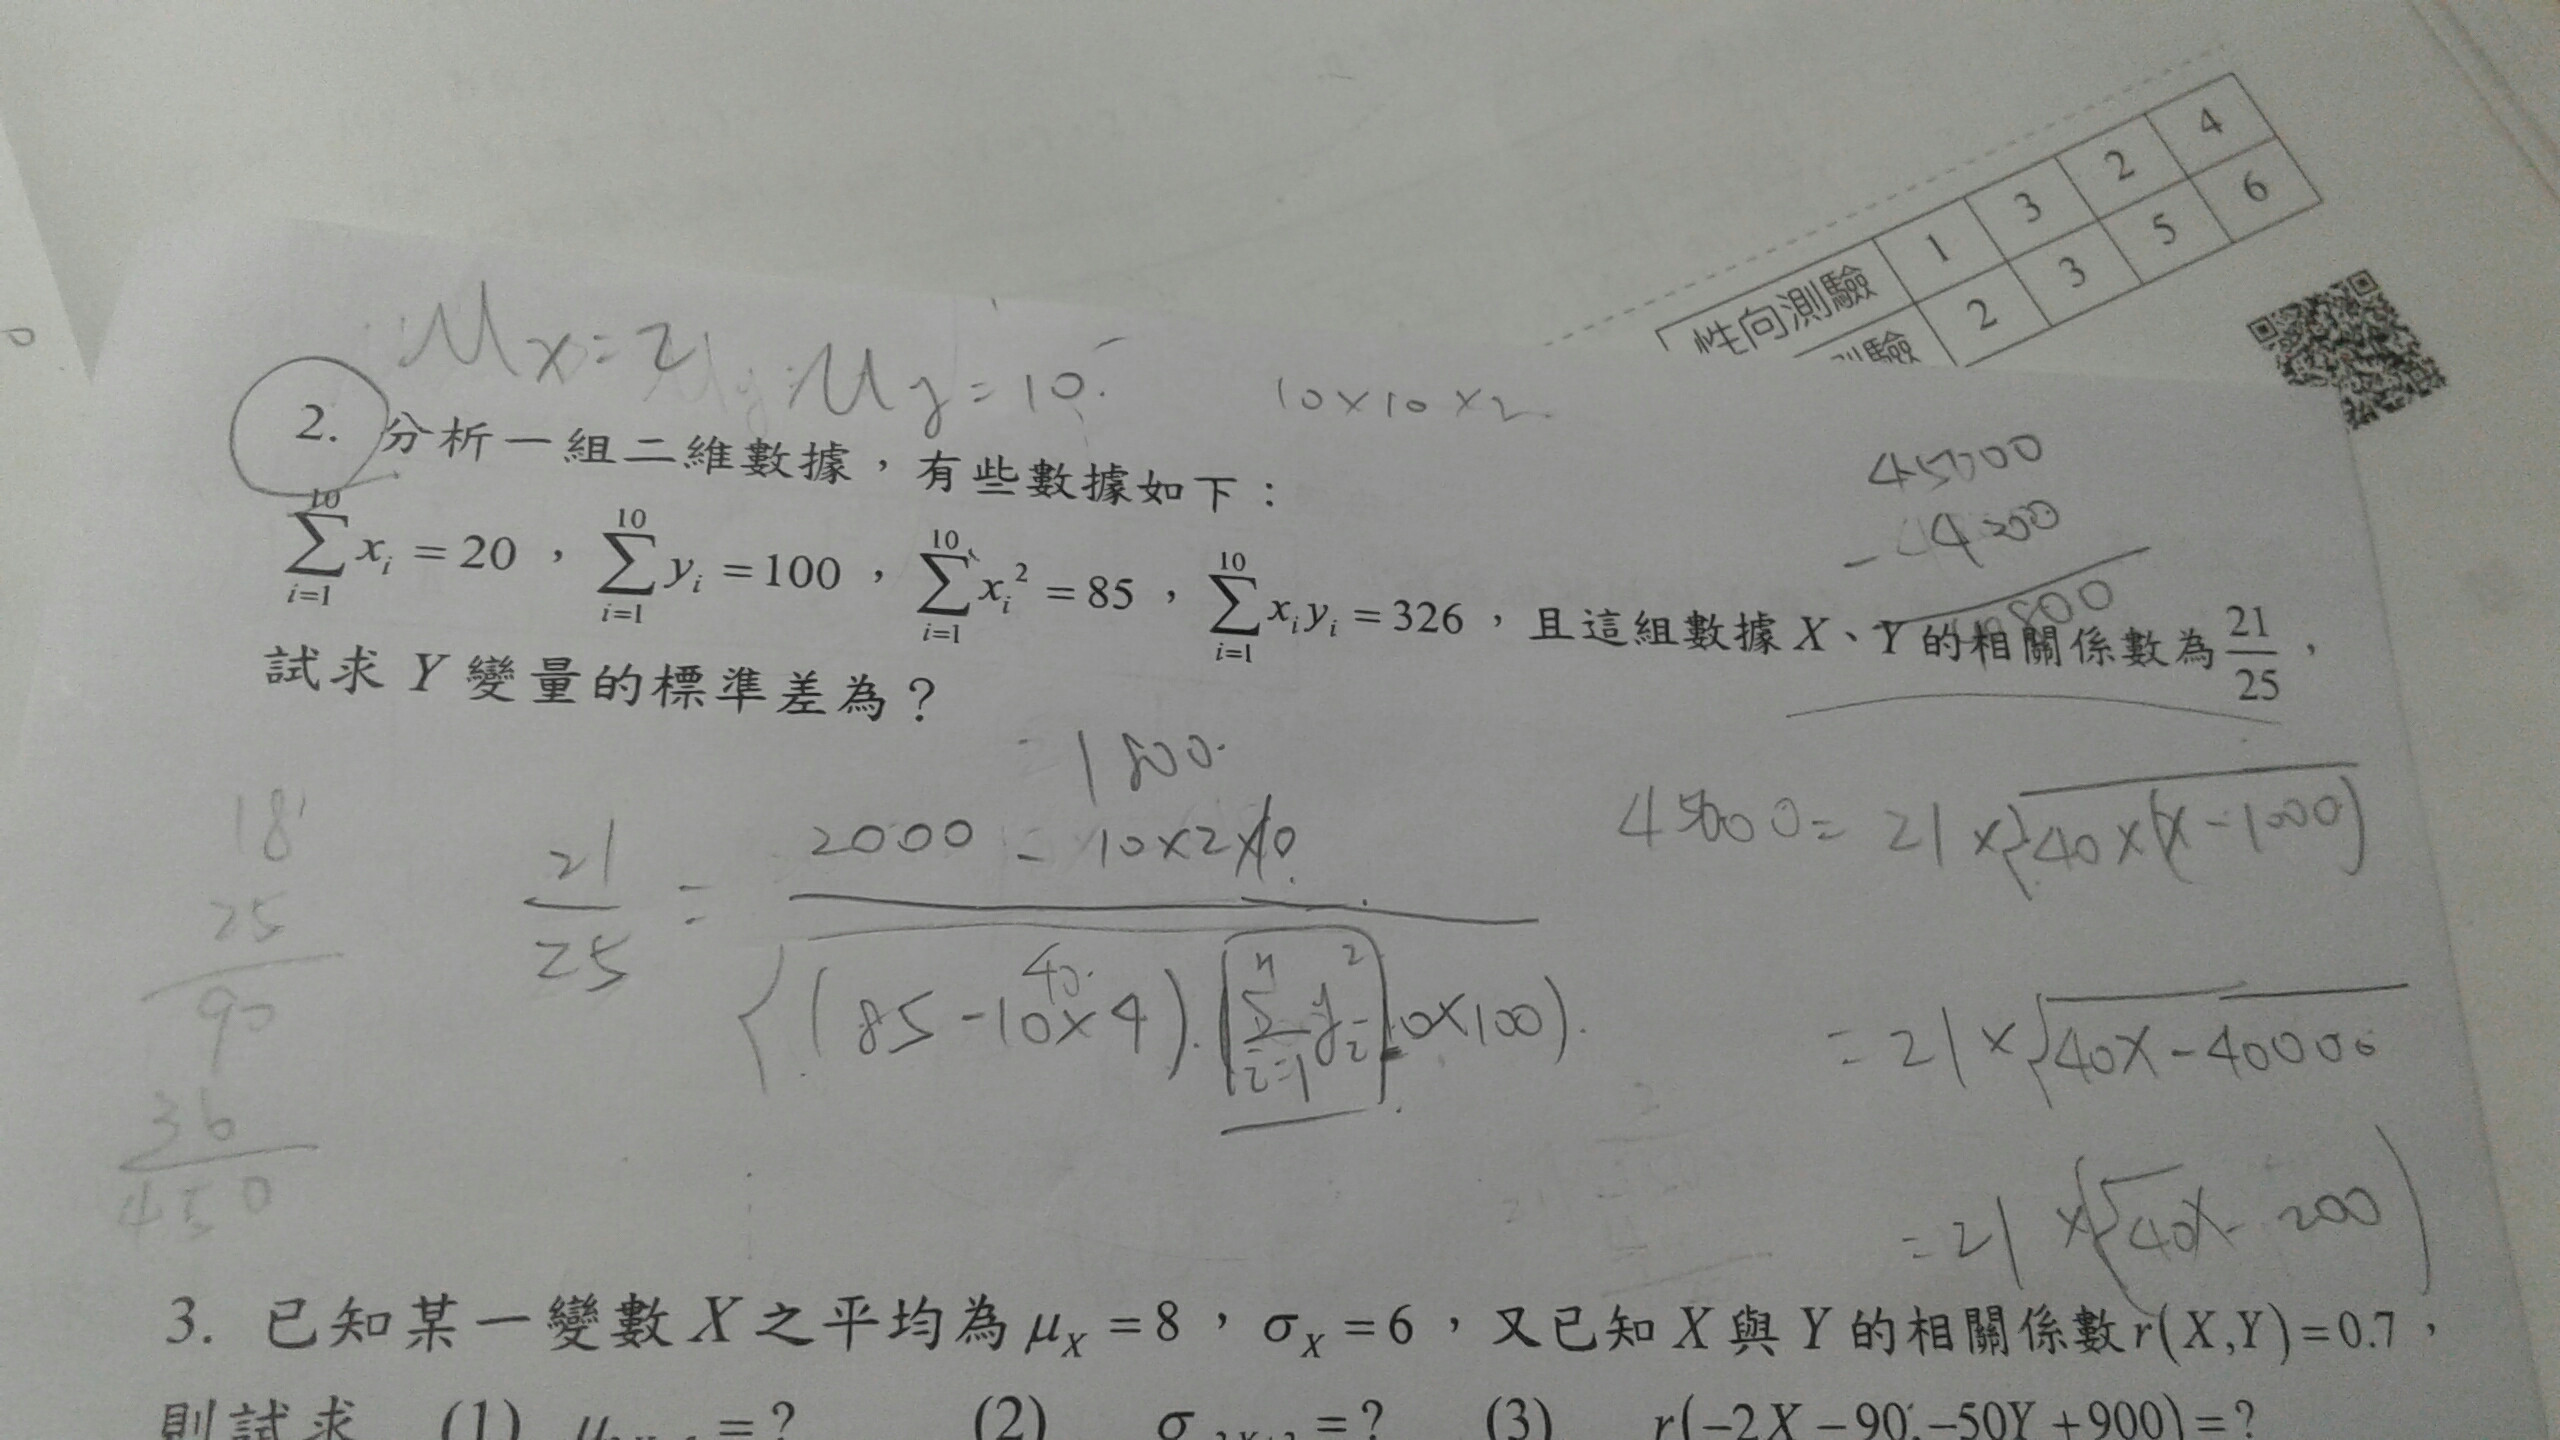 性向測驗 1 3 2 4
驗 2 3 5 6
μx=2 μy=10
10×10×2
2. 分析一組二維數據，有些數據如下：
45000
-4200
\sum_{i=1}^{10} x_i = 20，\sum_{i=1}^{10} y_i = 100，\sum_{i=1}^{10} x_i^2 = 85，\sum_{i=1}^{10} x_i y_i = 326，且這組數據 X、Y 的相關係數為 21/25，
試求 Y 變量的標準差為？
=1800
18
25
90
36
450
21/25 = (2000 - 10×2×10) / √((85-10×4)·(\sum_{i=1}^{n} y_i^2 - 10×100))
40
45000 = 21×√(40×(x-1000))
= 21×√(40x-40000)
= 21×(√40x - 200)
3. 已知某一變數 X 之平均為 μ_X = 8，σ_X = 6，又已知 X 與 Y 的相關係數 r(X,Y)=0.7，
則試求 (1) = ? (2) σ = ? (3) r(-2X-90,-50Y+900)=?